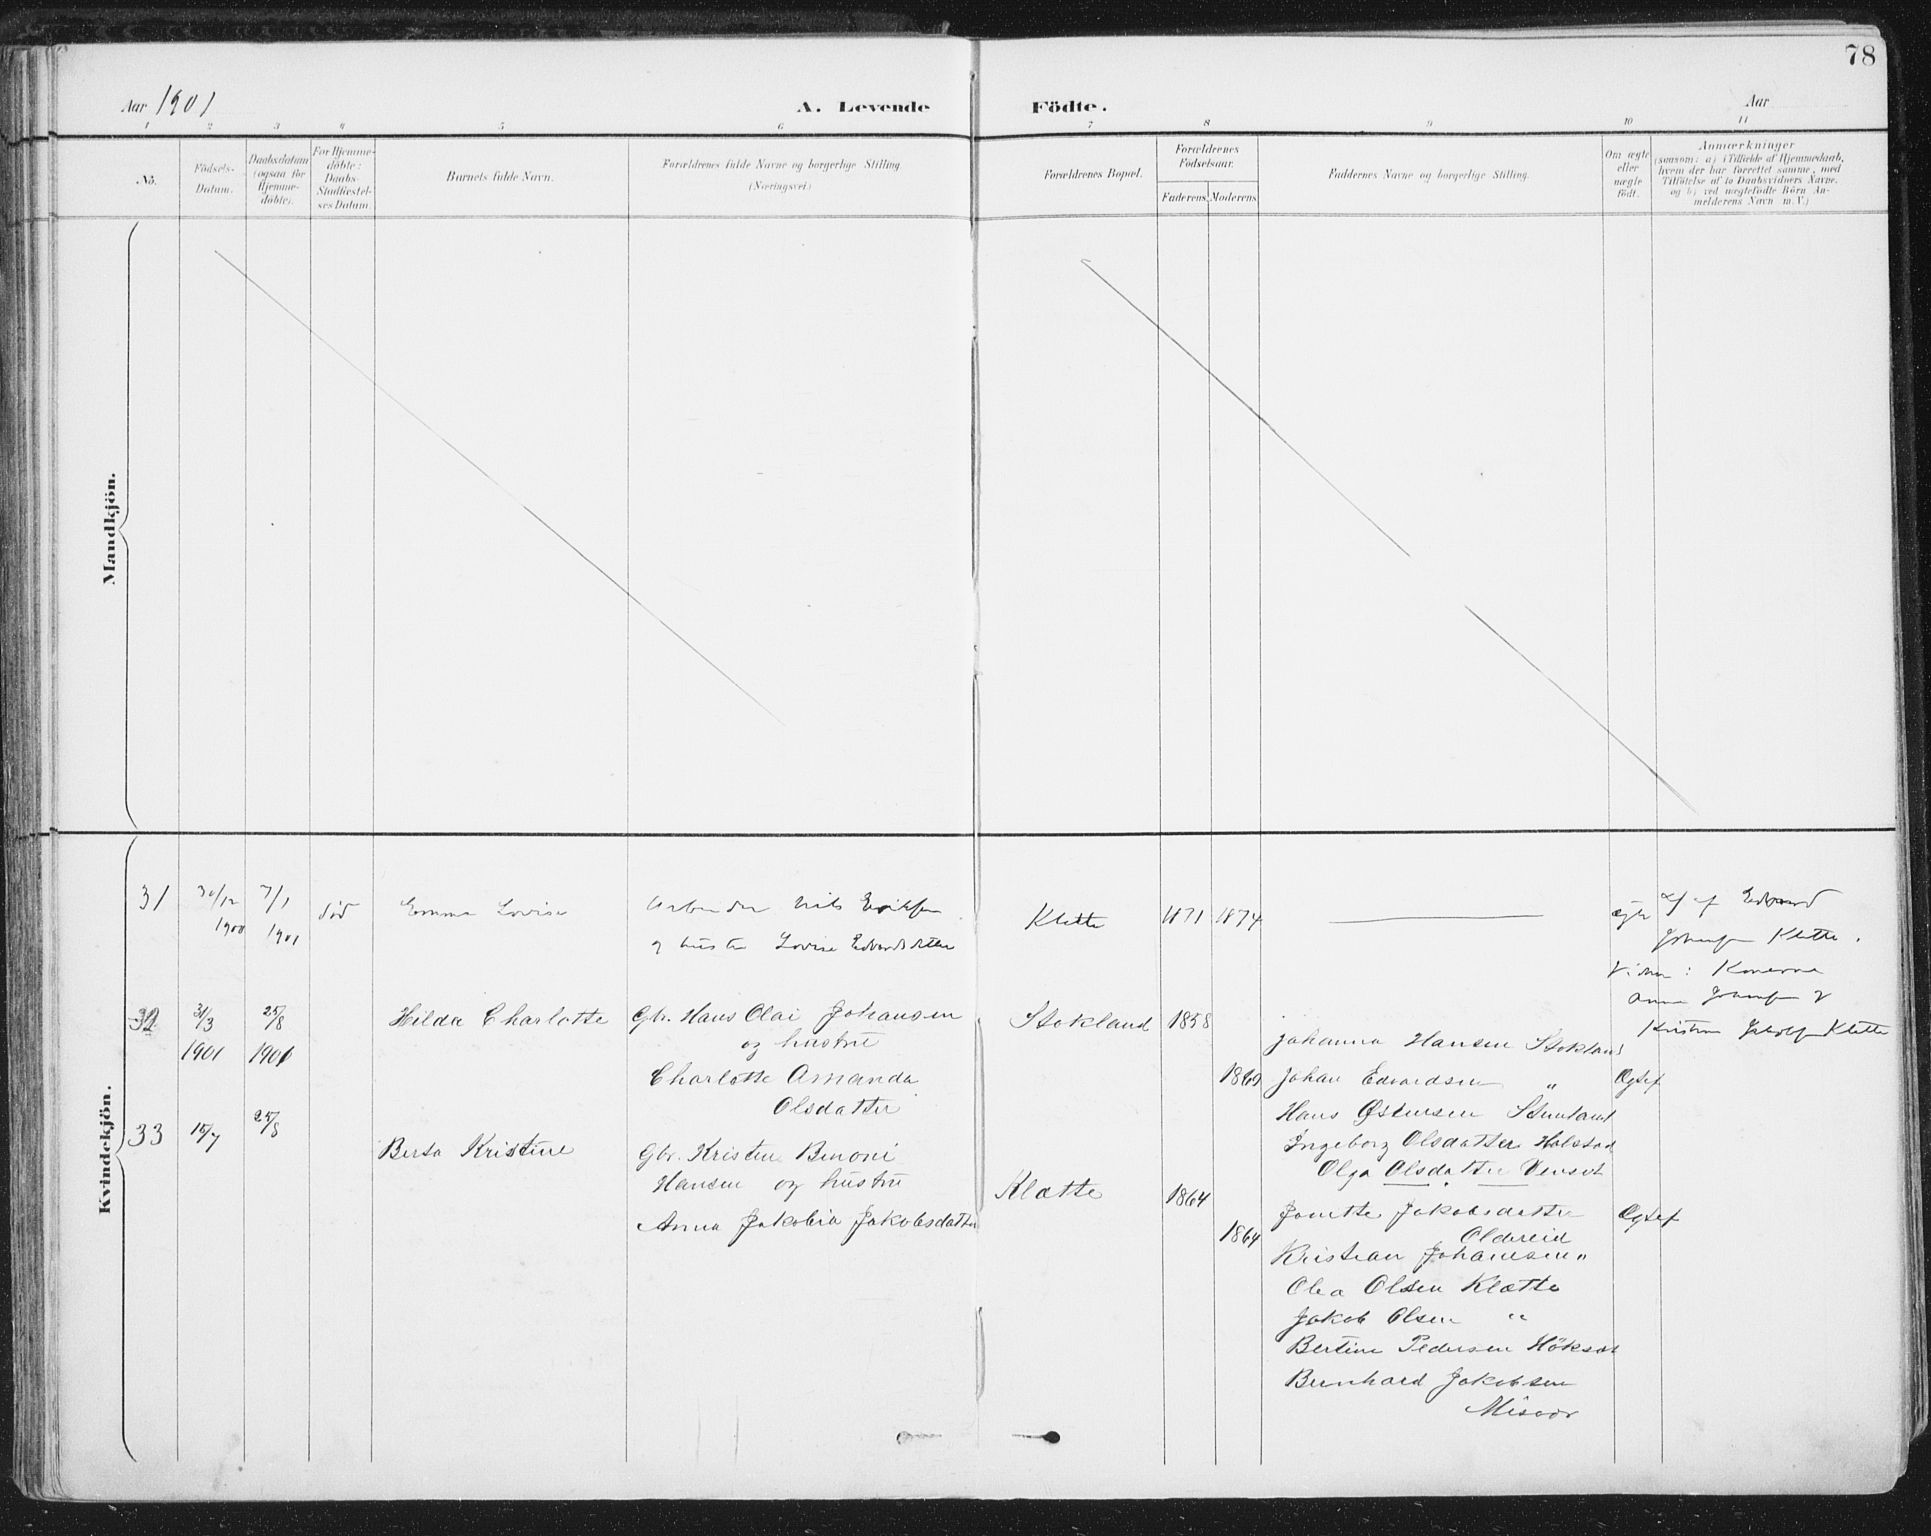 78
Aar 1901
A. Levende Födte.
Aar
1 2 3 4 5 6 7 8 9 10 11
No.
Födsels-
Datum.
Daabsdatum
(ogsaa for
Hjemme-
döbte).
For Hjemme-
döbte:
Daabs-
Stadfæstel-
ses Datum.
Barnets fulde Navn.
Forældrenes fulde Navne og borgerlige Stilling.
(Næringsvei)
Forældrenes Bopæl.
Forældrenes
Födselsaar.
Faderens. Moderens
Faddernes Navne og borgerlige Stilling.
Om ægte
eller
uægte
födt.
Anmærkninger
(saasom: a) i Tilfælde af Hjemmedaab,
hvem der har forrettet samme, med
Tilföielse af to Daabsvidners Navne.
og b) ved uægtefödte Börn An-
melderens Navn m. V.)
Mandkjön.
Kvindekjön.
31
30/12
1900
7/1
1901
död
Emma Lovise
Arbeider Nils Eriksen
og hustru Lovise Edvardsdatter
Klette
1871 1874
ægte
af Edvard
Johansen Klette.
Vidner: Konerne
Anna Johansen og
Kristina Jakobsen Klette
32
31/3
1901
25/8
1901
Hilda Charlotte
Gbr. Hans Olai Johansen
og hustru
Charlotte Amanda
Olsdatter
Stokland
1858
1860
Johanna Hansen Stokland
Johan Edvardsen "
Hans Østensen
Ingeborg Olsdatter
Olga Olsdatter Venset
Ægtef
33
15/7
25/8
Berta Kristine
Gbr. Kristen Benoni
Hansen og hustru
Anna Jakobia Jakobsdatter
Klætte
1864
1864
Jonette Jakobsdatter
Oldereid
Kristian Johansen "
Olea Olsen Klætte
Jakob Olsen "
Bertine Pedersen Höksat
Bernhard Jakobsen
Misvær
Ægtef